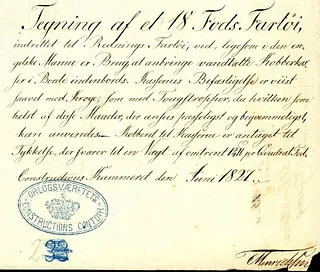 Tegning af et 18 Fods Fartöi,
indrettet til Rednings Fartöi, ved, ligesom i den en-
gelske Marine er Brug, at anbringe vandtætte Kobberkas-
ser i Borde indenbords. Kassernes Befæstigelse er viist
saavel med Kroge, som med Tougstropper, du hvilken som
helst af disse Maader, der ansees passeligst og beqvemmeligst,
kan anvendes. Kobberet til Kasserne er antaget til
Tykkelse, der svarer til en Vægt af omtrent pr Qvadrat Fod.
Constructions Kammeret den Juni 1821.
ORLOGSVÆRFTETS
CONSTRUCTIONS CONTOIR
2